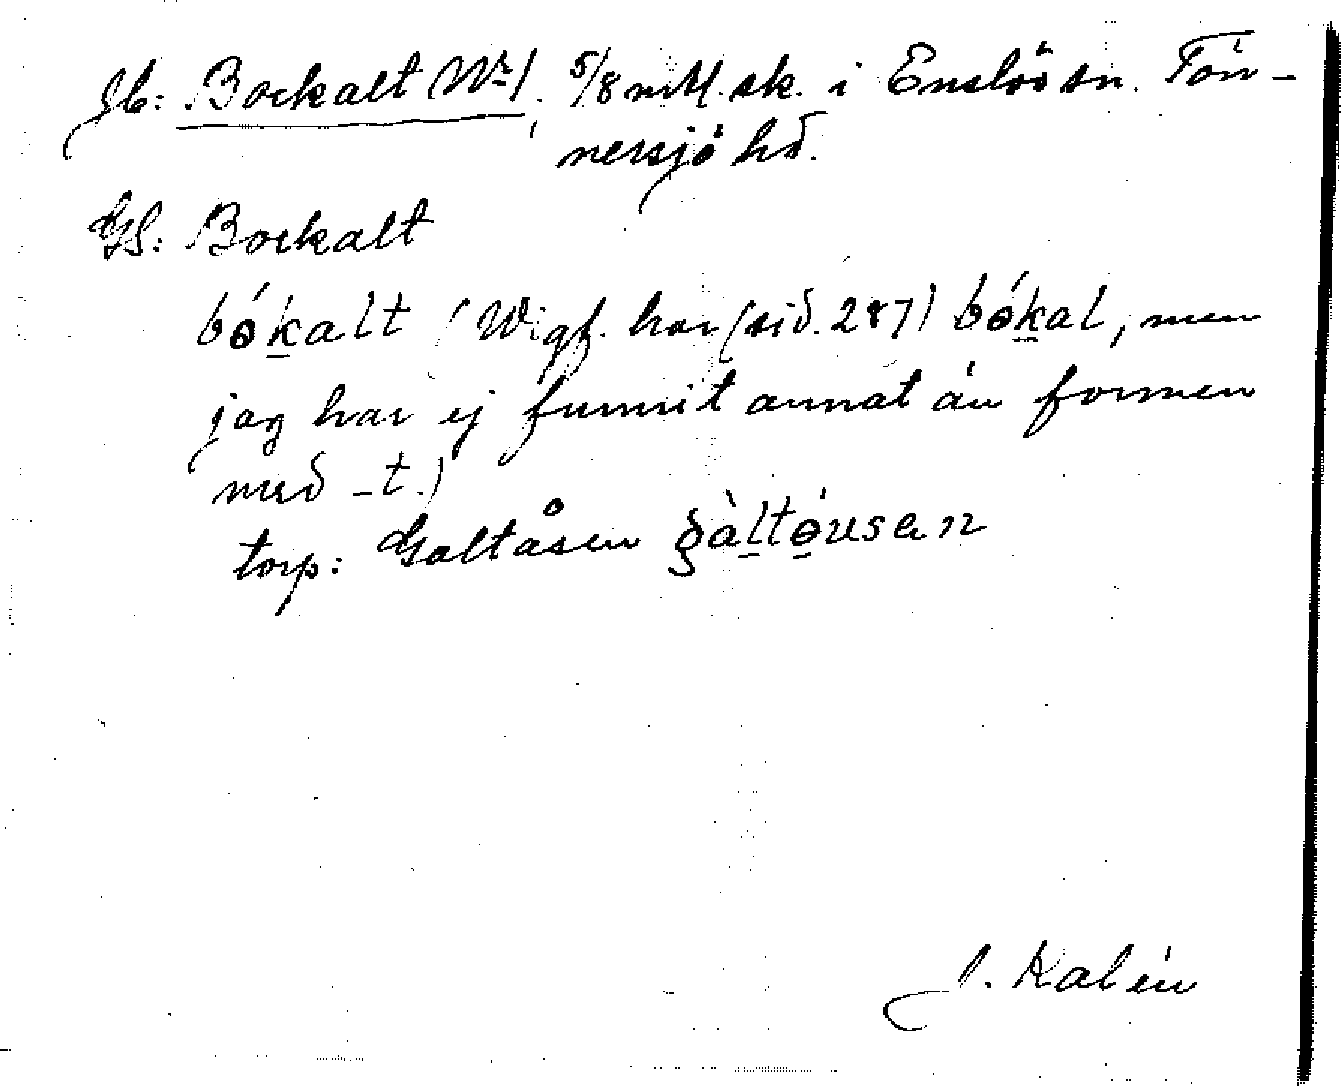 Jb: Bockalt Nr 1, 5/8 mtl. sk. i Enslöv sn. Tön-
nersjö hd.
GS: Bockalt
bókalt (Wigf. har (sid. 287) bókal, men
jag har ej funnit annat än formen
med -t.)
torp: Galtåsen gàltóusan
J. Kalén